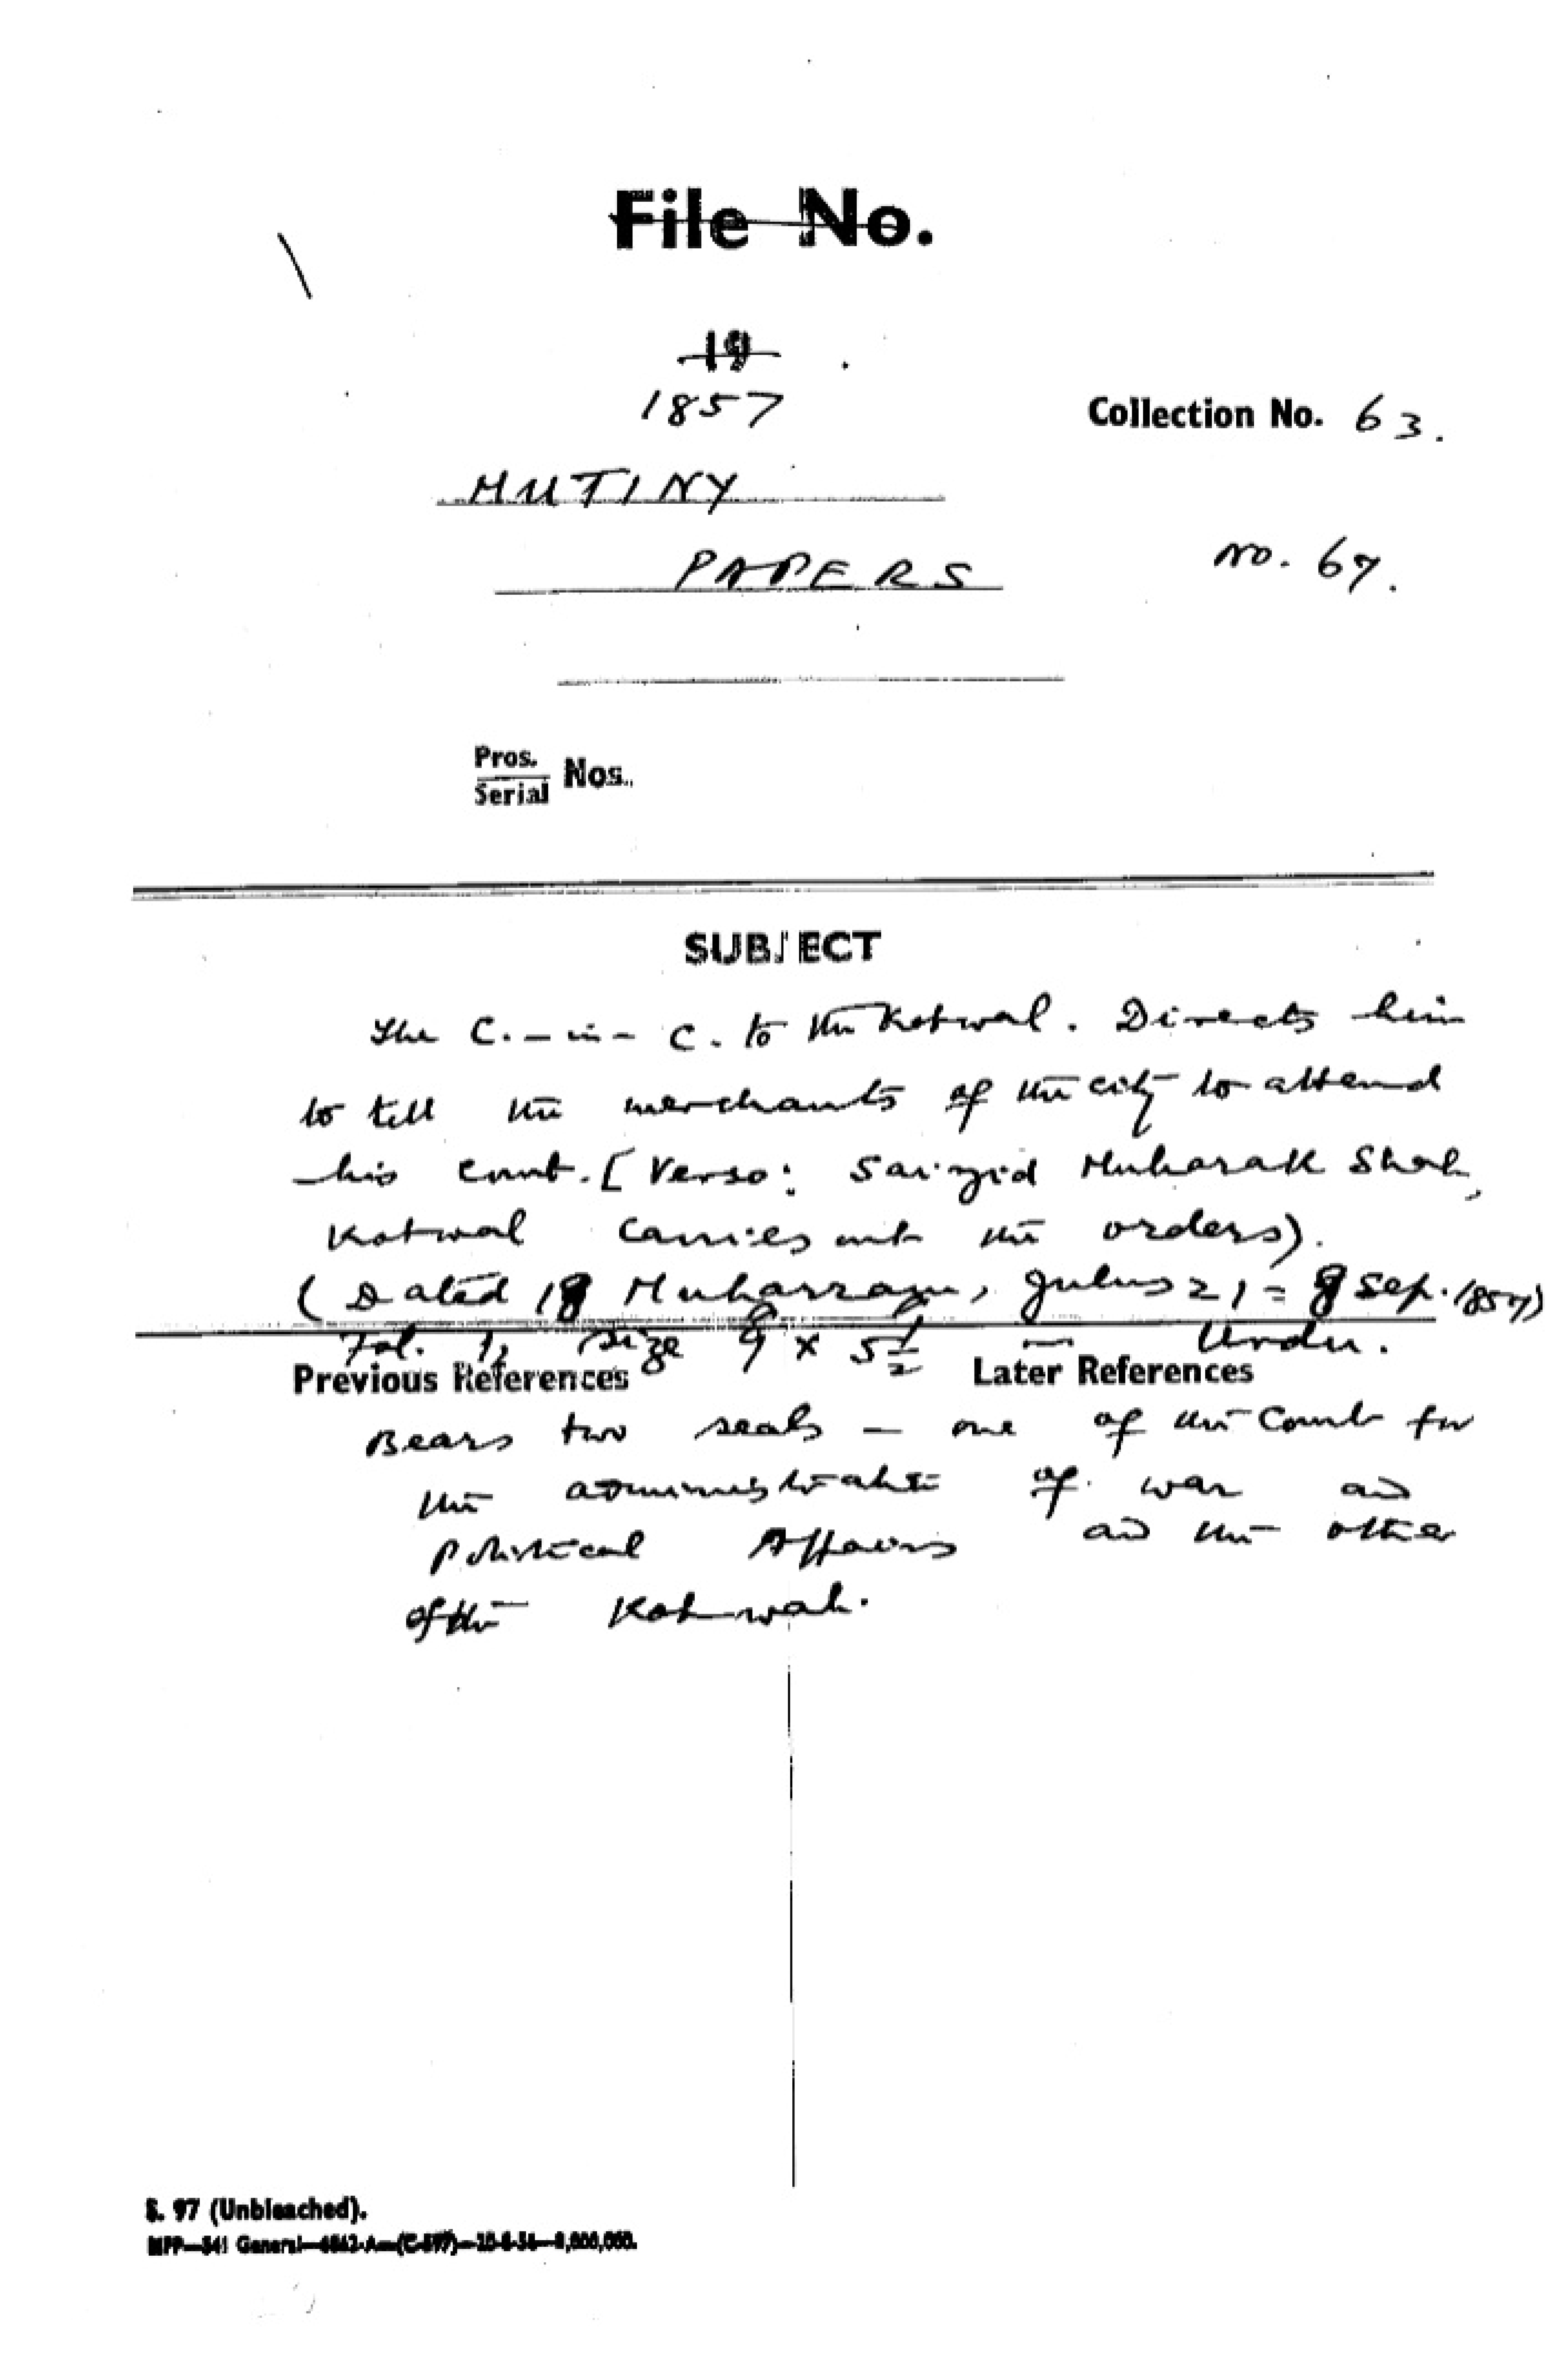 File No.
19
1857
Collection No. 63.
MUTINY
PAPERS
No. 67.
Pros.
Serial Nos.
SUBJECT
The C.-in-C. to the Kotwal. Directs him
to tell the merchants of the city to attend
his court. [Verso: Saiyid Mubarak Shah,
Kotwal carries out the orders).
(Dated 18 Muharram, Julus 21 = 8 Sep. 1857)
Fol. 1, Size 9 x 5½ — Urdu.
Previous References
Later References
Bears two seals — one of the Court for
the administration of war and
Political Affairs and the other
of the Kotwal.
S. 97 (Unbleached).